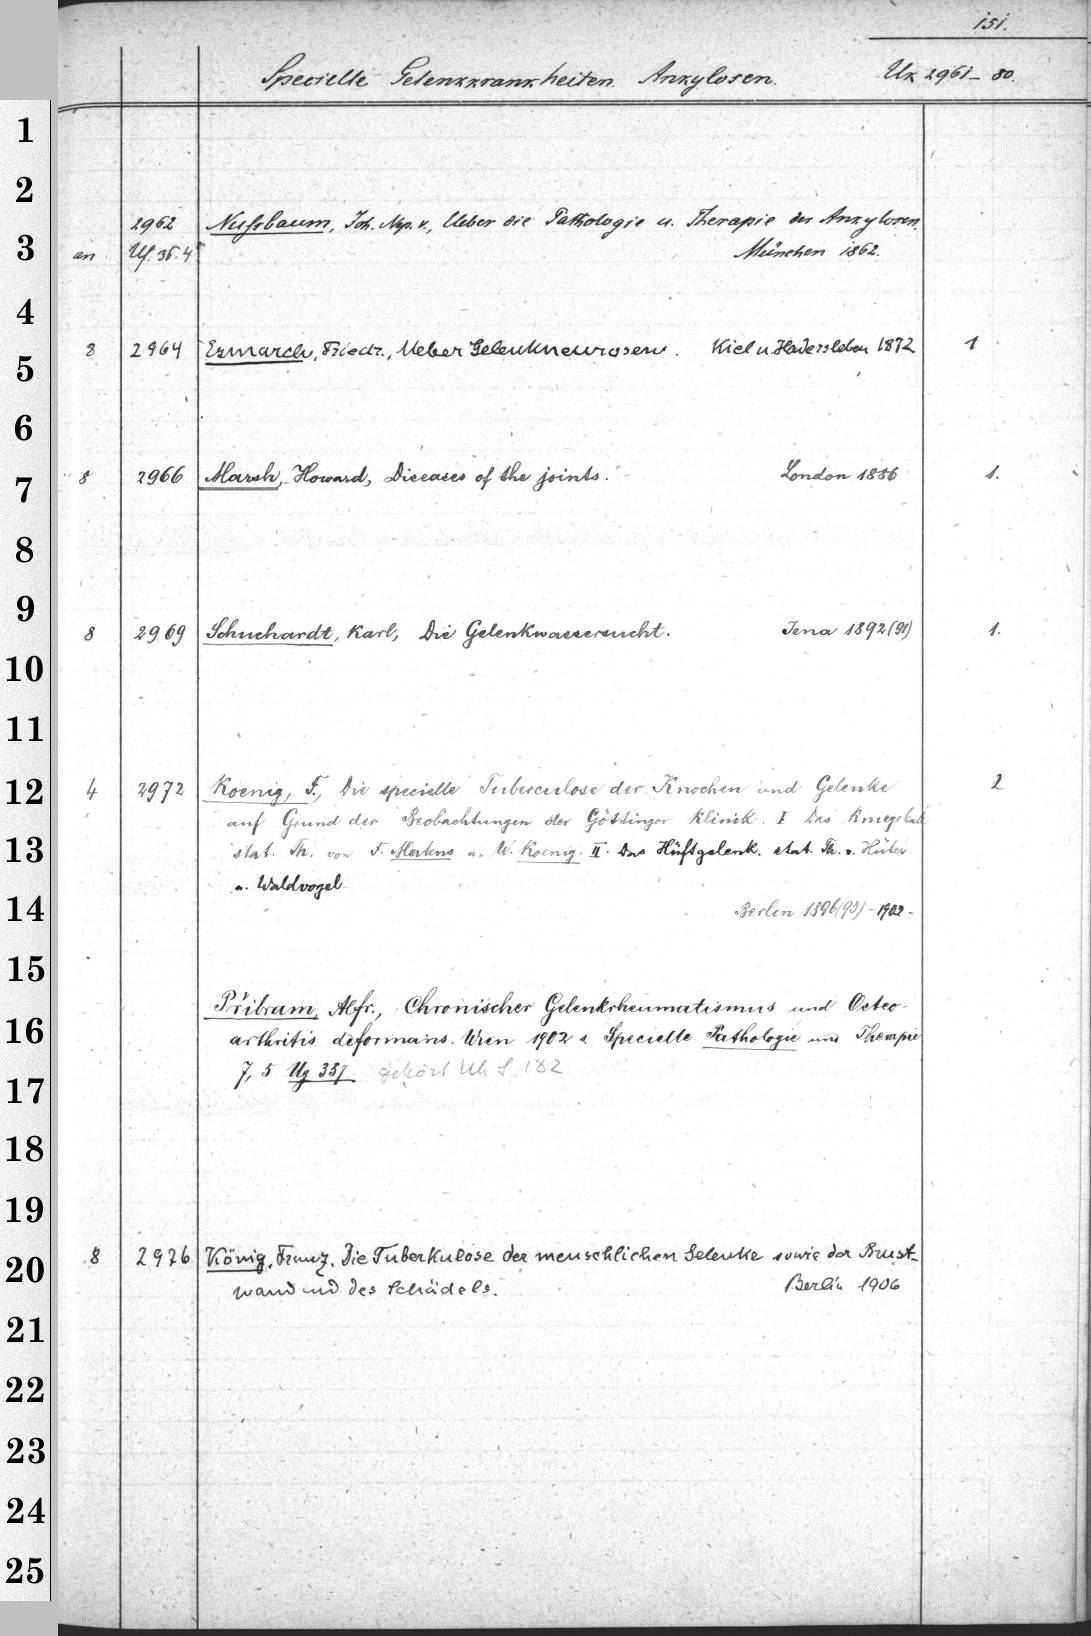 151.
Specielle Gelenkkrankheiten. Ankylosen. Uk 2961-80.
1
2
2962 Nussbaum, Joh. Nep. v., Ueber die Pathologie u. Therapie der Ankylosen.
3
an Uf. 35.4 München 1862.
4
8 2964 Esmarch, Friedr., Ueber Gelenkneurosen. Kiel u. Hadersleben 1872 1
5
6
8 2966 Marsh, Howard, Diseases of the joints. London 1886 1.
7
8
9
8 2969 Schuchardt, Karl, Die Gelenkwassersucht. Jena 1892(91) 1.
10
11
4 2972 Koenig, F., Die specielle Tuberculose der Knochen und Gelenke 2
12
auf Grund der Beobachtungen der Göttinger Klinik. I Das Kniegelenk
13
stat. Th. von F. Mertens u. W. Koenig. II. Das Hüftgelenk. stat. Th. v. Hüter
u. Waldvogel
14
Berlin 1896(93)-1902-
15
Přibram, Alfr., Chronischer Gelenkrheumatismus und Osteo-
16
arthritis deformans. Wien 1902 s. Specielle Pathologie und Therapie
7, 5 Ug 357 gehört Uk S. 182
17
18
19
8 2976 König, Franz, Die Tuberkulose der menschlichen Gelenke sowie der Brust-
20
wand und des Schädels. Berlin 1906
21
22
23
24
25